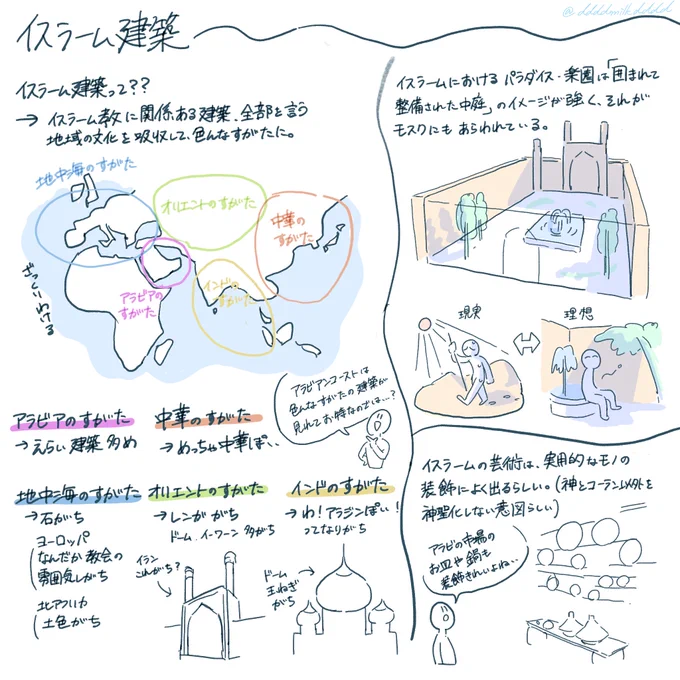 @ddddmilkdddd
イスラーム建築
イスラーム建築って??
→ イスラーム教に関係ある建築、全部を言う
地域の文化を吸収して、色んなすがたに。
地中海のすがた
オリエントのすがた
中華の
すがた
アラビアの
すがた
インドの
すがた
ざっくりわける
アラビアのすがた
→ えらい建築多め
中華のすがた
→ めっちゃ中華ぽい、
アラビアンコーストは
色んなすがたの建築が
見れてお得なのでは…?
地中海のすがた
→ 石がち
ヨーロッパ
なんだか教会の
雰囲気しがち
北アフリカ
土色がち
オリエントのすがた
→ レンガがち
ドーム イーワーン 多がち
イラン
これがち?
インドのすがた
→ わ!アラジンぽい!
ってなりがち
ドーム
玉ねぎ
がち
イスラームにおける パラダイス・楽園は「囲まれて
整備された中庭」のイメージが強く、それが
モスクにも あらわれている。
現実
理想
イスラームの芸術は、実用的なモノの
装飾によく出るらしい。(神とコーラン以外を
神聖化しない意図らしい)
アラビの市場の
お皿や鍋も
装飾きれいよね…